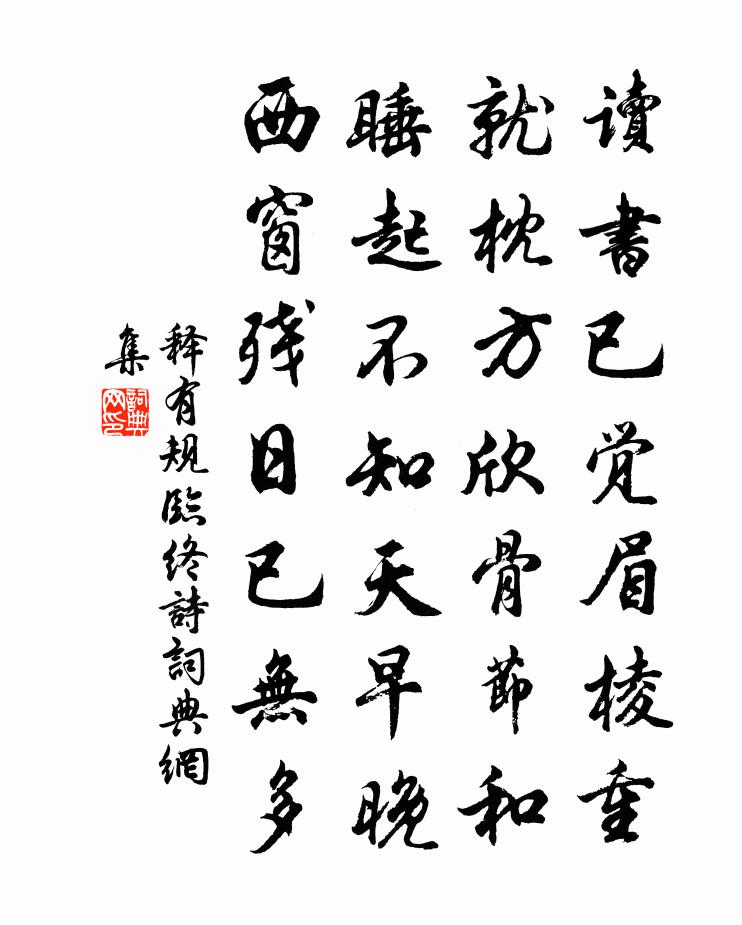 讀書已覚眉棱重
就枕方欣骨節和
睡起不知天早晚
西窗残日已無多
释有規臨终詩詞典網
集
詞典網印